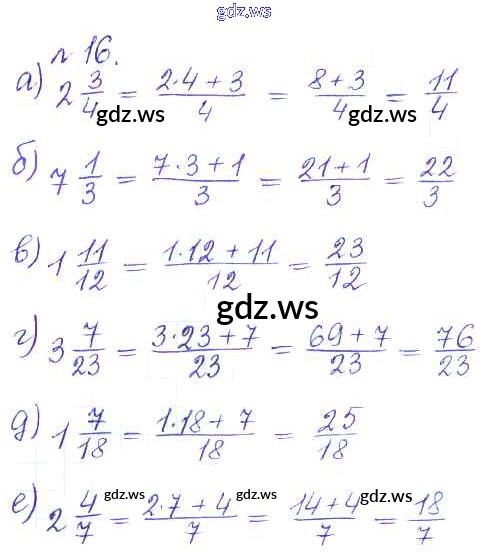 gdz.ws
№ 16.
а) 2 3/4 = (2·4 + 3)/4 = (8 + 3)/4 = 11/4
gdz.ws gdz.ws
б) 7 1/3 = (7·3 + 1)/3 = (21 + 1)/3 = 22/3
в) 1 11/12 = (1·12 + 11)/12 = 23/12
gdz.ws
г) 3 7/23 = (3·23 + 7)/23 = (69 + 7)/23 = 76/23
д) 1 7/18 = (1·18 + 7)/18 = 25/18
gdz.ws gdz.ws gdz.ws
е) 2 4/7 = (2·7 + 4)/7 = (14 + 4)/7 = 18/7